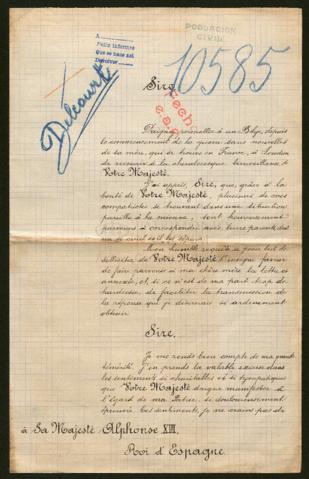 POBLACION
CIVIL
A
Pide informes
que se hace así
Devolver
Delcourt
10585
Sire,
Daigne permettre à un Belge, depuis
le commencement de la guerre sans nouvelles
de sa mère, qui se trouve en France, à
de recourir à la chevaleresque bienveillance de
Votre Majesté.
J'ai appris, Sire, que, grâce à la
bonté de Votre Majesté, plusieurs de mes
compatriotes se trouvant dans une situation
pareille à la mienne, sont heureusement
parvenus à correspondre avec leurs parents dont
Mon humble requête a pour but de
solliciter de Votre Majesté l'insigne faveur
de faire parvenir à ma chère mère la lettre ci
annexée, et, si ce n'est de ma part trop de
hardiesse, de faciliter la transmission de
la réponse que je désirerais si ardemment
obtenir.
Sire,
Je me rends bien compte de ma grande
témérité. J'en prends la valable excuse dans
les sentiments si charitables et si sympathiques
que Votre Majesté daigne manifester à
l'égard de ma Patrie, si douloureusement
éprouvée. Ces sentiments, je ne crains pas de
à Sa Majesté Alphonse XIII,
Roi d'Espagne.